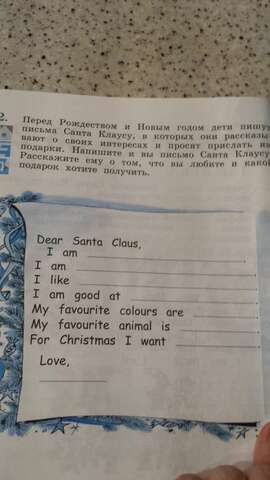 2. Перед Рождеством и Новым годом дети пишут
письма Санта Клаусу, в которых они рассказы-
вают о своих интересах и просят прислать им
подарки. Напишите и вы письмо Санта Клаусу.
Расскажите ему о том, что вы любите и какой
подарок хотите получить.
Dear Santa Claus,
I am ____________.
I am ____________
I like ____________
I am good at ____________
My favourite colours are ____________
My favourite animal is ____________
For Christmas I want ____________
Love,
____________